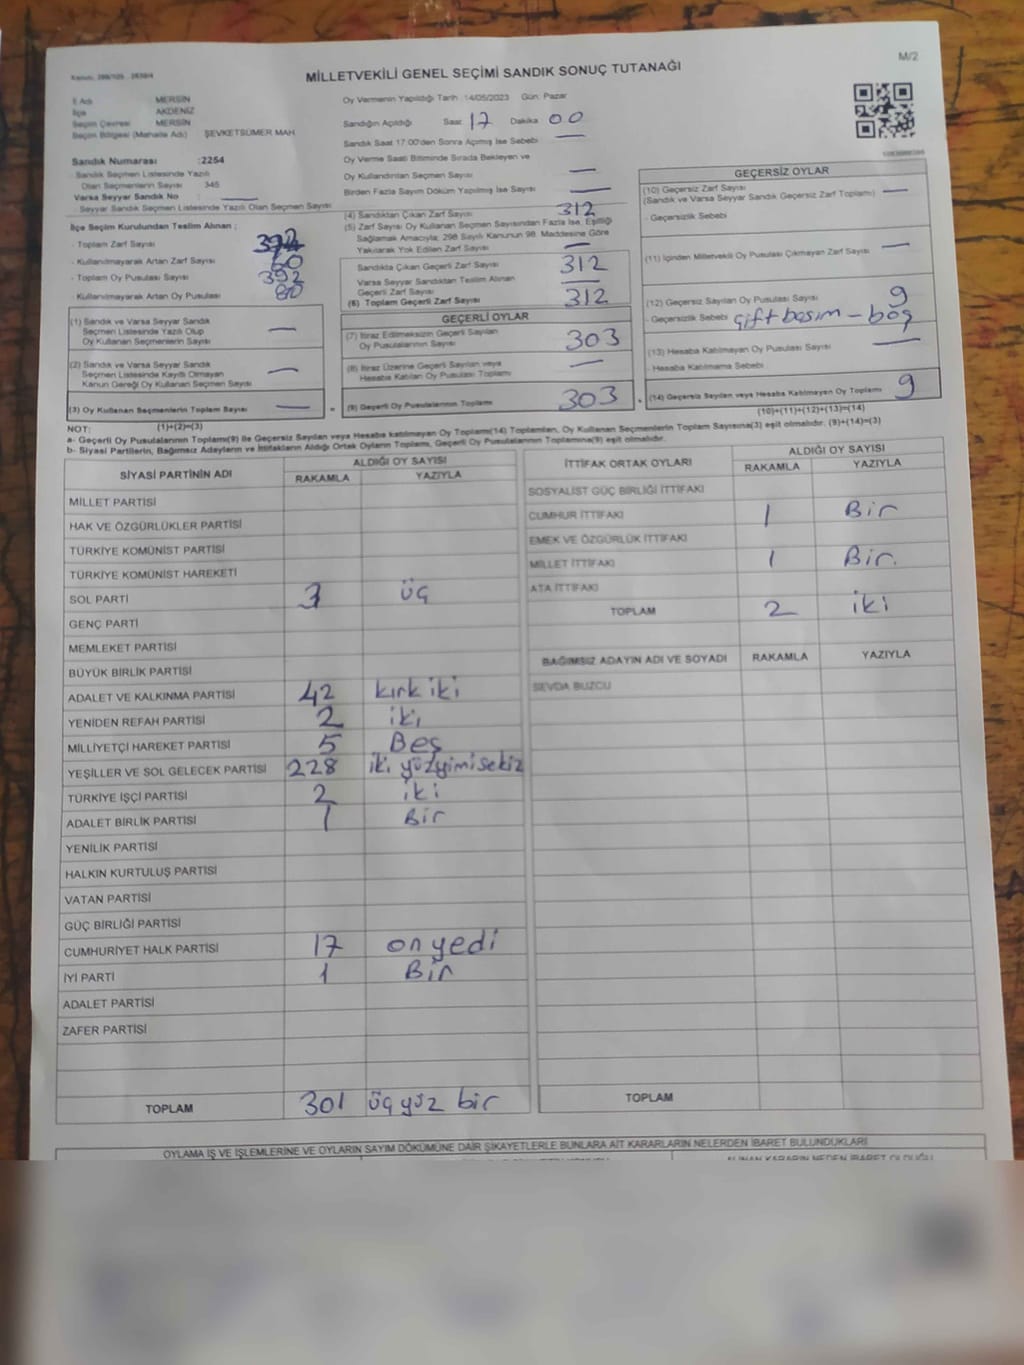 M/2
MİLLETVEKİLİ GENEL SEÇİMİ SANDIK SONUÇ TUTANAĞI
İl Adı MERSİN
İlçe AKDENİZ
Seçim Çevresi MERSİN
Seçim Bölgesi (Mahalle Adı) ŞEVKETSÜMER MAH
Sandık Numarası :2254
Sandık Seçmen Listesinde Yazılı
Olan Seçmenlerin Sayısı 345
Varsa Seyyar Sandık No —
- Seyyar Sandık Seçmen Listesinde Yazılı Olan Seçmen Sayısı
İlçe Seçim Kurulundan Teslim Alınan ;
- Toplam Zarf Sayısı 392
- Kullanılmayarak Artan Zarf Sayısı 80
- Toplam Oy Pusulası Sayısı 392
- Kullanılmayarak Artan Oy Pusulası 80
(1) Sandık ve Varsa Seyyar Sandık
Seçmen Listesinde Yazılı Olup
Oy Kullanan Seçmenlerin Sayısı —
(2) Sandık ve Varsa Seyyar Sandık
Seçmen Listesinde Kayıtlı Olmayan
Kanun Gereği Oy Kullanan Seçmen Sayısı —
(3) Oy Kullanan Seçmenlerin Toplam Sayısı —
(1)+(2)=(3)
Oy Vermenin Yapıldığı Tarih :14/05/2023 Gün: Pazar
Sandığın Açıldığı Saat 17 Dakika 00
Sandık Saat 17:00'den Sonra Açılmış İse Sebebi —
Oy Verme Saati Bitiminde Sırada Bekleyen ve
Oy Kullandırılan Seçmen Sayısı —
Birden Fazla Sayım Döküm Yapılmış İse Sayısı —
(4) Sandıktan Çıkan Zarf Sayısı 312
(5) Zarf Sayısı Oy Kullanan Seçmen Sayısından Fazla İse, Eşitliği
Sağlamak Amacıyla; 298 Sayılı Kanunun 98. Maddesine Göre
Yakılarak Yok Edilen Zarf Sayısı —
Sandıkta Çıkan Geçerli Zarf Sayısı 312
Varsa Seyyar Sandıktan Teslim Alınan
Geçerli Zarf Sayısı —
(6) Toplam Geçerli Zarf Sayısı 312
GEÇERLİ OYLAR
(7) İtiraz Edilmeksizin Geçerli Sayılan
Oy Pusulalarının Sayısı 303
(8) İtiraz Üzerine Geçerli Sayılan veya
Hesaba Katılan Oy Pusulası Toplamı —
(9) Geçerli Oy Pusulalarının Toplamı 303
GEÇERSİZ OYLAR
(10) Geçersiz Zarf Sayısı
(Sandık ve Varsa Seyyar Sandık Geçersiz Zarf Toplamı) —
- Geçersizlik Sebebi
(11) İçinden Milletvekili Oy Pusulası Çıkmayan Zarf Sayısı —
(12) Geçersiz Sayılan Oy Pusulası Sayısı 9
- Geçersizlik Sebebi çift basım – boş
(13) Hesaba Katılmayan Oy Pusulası Sayısı —
- Hesaba Katılmama Sebebi
(14) Geçersiz Sayılan veya Hesaba Katılmayan Oy Toplamı 9
(10)+(11)+(12)+(13)=(14)
NOT:
a- Geçerli Oy Pusulalarının Toplamı(9) ile Geçersiz Sayılan veya Hesaba katılmayan Oy Toplamı(14) Toplamları, Oy Kullanan Seçmenlerin Toplam Sayısına(3) eşit olmalıdır. (9)+(14)=(3)
b- Siyasi Partilerin, Bağımsız Adayların ve İttifakların Aldığı Ortak Oyların Toplamı, Geçerli Oy Pusulalarının Toplamına(9) eşit olmalıdır.
SİYASİ PARTİNİN ADI ALDIĞI OY SAYISI
RAKAMLA YAZIYLA
MİLLET PARTİSİ
HAK VE ÖZGÜRLÜKLER PARTİSİ
TÜRKİYE KOMÜNİST PARTİSİ
TÜRKİYE KOMÜNİST HAREKETİ
SOL PARTİ 3 üç
GENÇ PARTİ
MEMLEKET PARTİSİ
BÜYÜK BİRLİK PARTİSİ
ADALET VE KALKINMA PARTİSİ 42 kırk iki
YENİDEN REFAH PARTİSİ 2 iki
MİLLİYETÇİ HAREKET PARTİSİ 5 Beş
YEŞİLLER VE SOL GELECEK PARTİSİ 228 iki yüzyimisekiz
TÜRKİYE İŞÇİ PARTİSİ 2 iki
ADALET BİRLİK PARTİSİ 1 Bir
YENİLİK PARTİSİ
HALKIN KURTULUŞ PARTİSİ
VATAN PARTİSİ
GÜÇ BİRLİĞİ PARTİSİ
CUMHURİYET HALK PARTİSİ 17 on yedi
İYİ PARTİ 1 Bir
ADALET PARTİSİ
ZAFER PARTİSİ
TOPLAM 301 üç yüz bir
İTTİFAK ORTAK OYLARI ALDIĞI OY SAYISI
RAKAMLA YAZIYLA
SOSYALİST GÜÇ BİRLİĞİ İTTİFAKI
CUMHUR İTTİFAKI 1 Bir
EMEK VE ÖZGÜRLÜK İTTİFAKI
MİLLET İTTİFAKI 1 Bir.
ATA İTTİFAKI
TOPLAM 2 iki
BAĞIMSIZ ADAYIN ADI VE SOYADI RAKAMLA YAZIYLA
SEVDA BUZCU
TOPLAM
OYLAMA İŞ VE İŞLEMLERİNE VE OYLARIN SAYIM DÖKÜMÜNE DAİR ŞİKAYETLERLE BUNLARA AİT KARARLARIN NELERDEN İBARET BULUNDUKLARI
ALINAN KARARIN NEDEN İBARET OLDUĞU